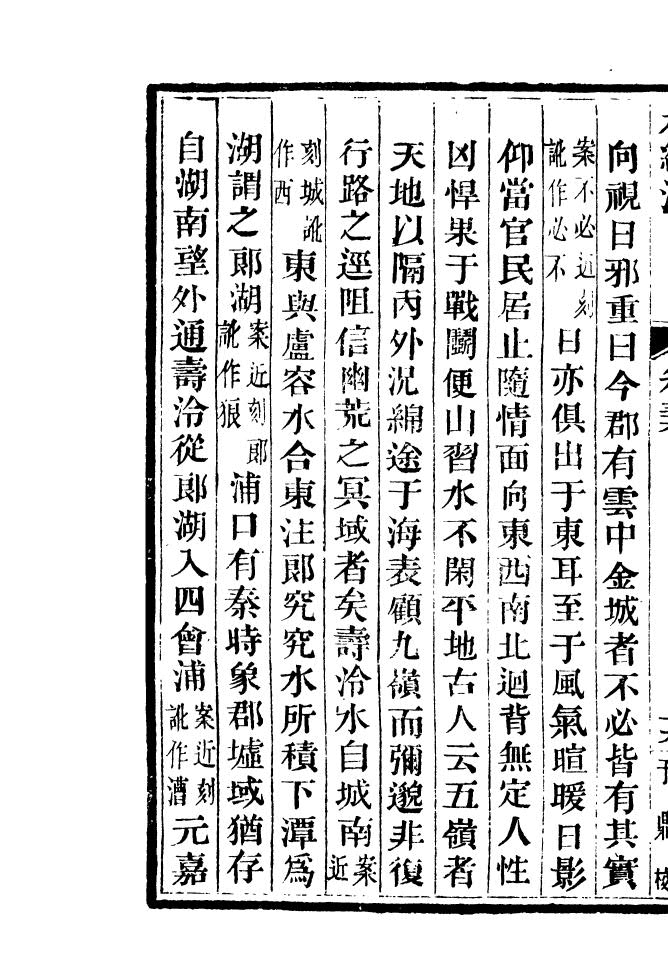 向視日邪重曰今郡有雲中金城者不必皆有其實
案不必近刻
訛作必不
日亦俱出于東耳至于風氣暄暖日影
仰當官民居止隨情面向東西南北迴背無定人性
凶悍果于戰鬭便山習水不閑平地古人云五嶺者
天地以隔內外況綿途于海表顧九嶺而彌邈非復
行路之逕阻信幽荒之冥域者矣壽泠水自城南
案
近
刻城訛
作西
東與盧容水合東注郎究究水所積下潭爲
湖謂之郎湖
案近刻郎
訛作狼
浦口有秦時象郡墟域猶存
自湖南望外通壽泠從郎湖入四會浦
案近刻
訛作漕
元嘉